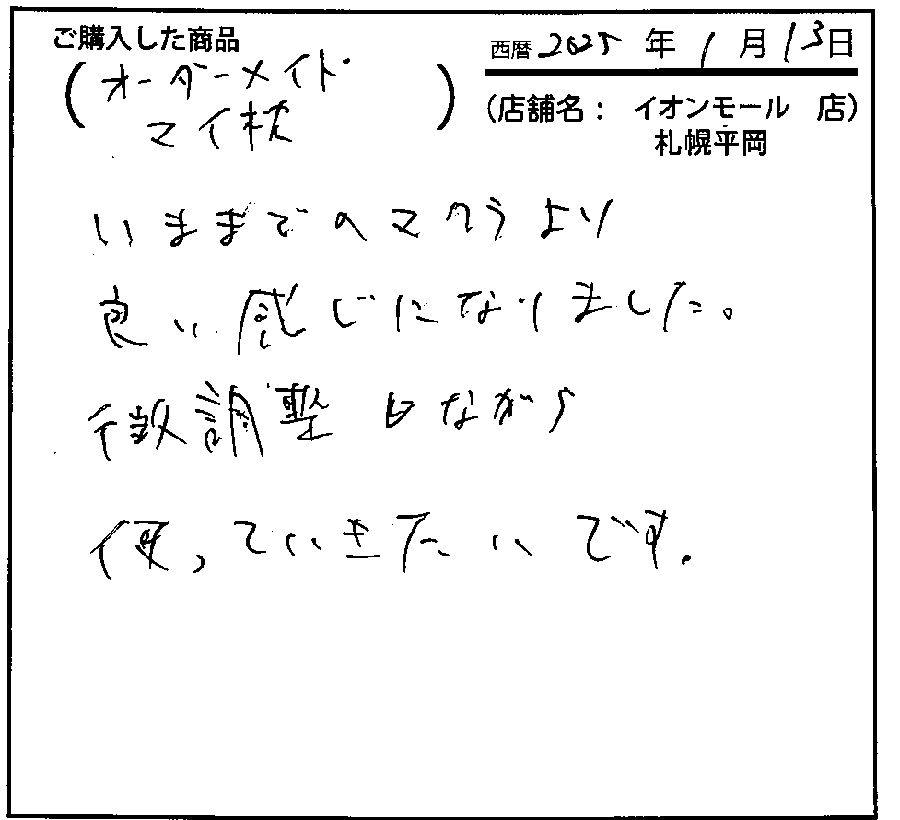 ご購入した商品
西暦 2025 年 1 月 13 日
(オーダーメイド
マイ枕)
(店舗名: イオンモール 店)
札幌平岡
いままでのマクラより
良い感じになりました。
微調整しながら
使っていきたいです。